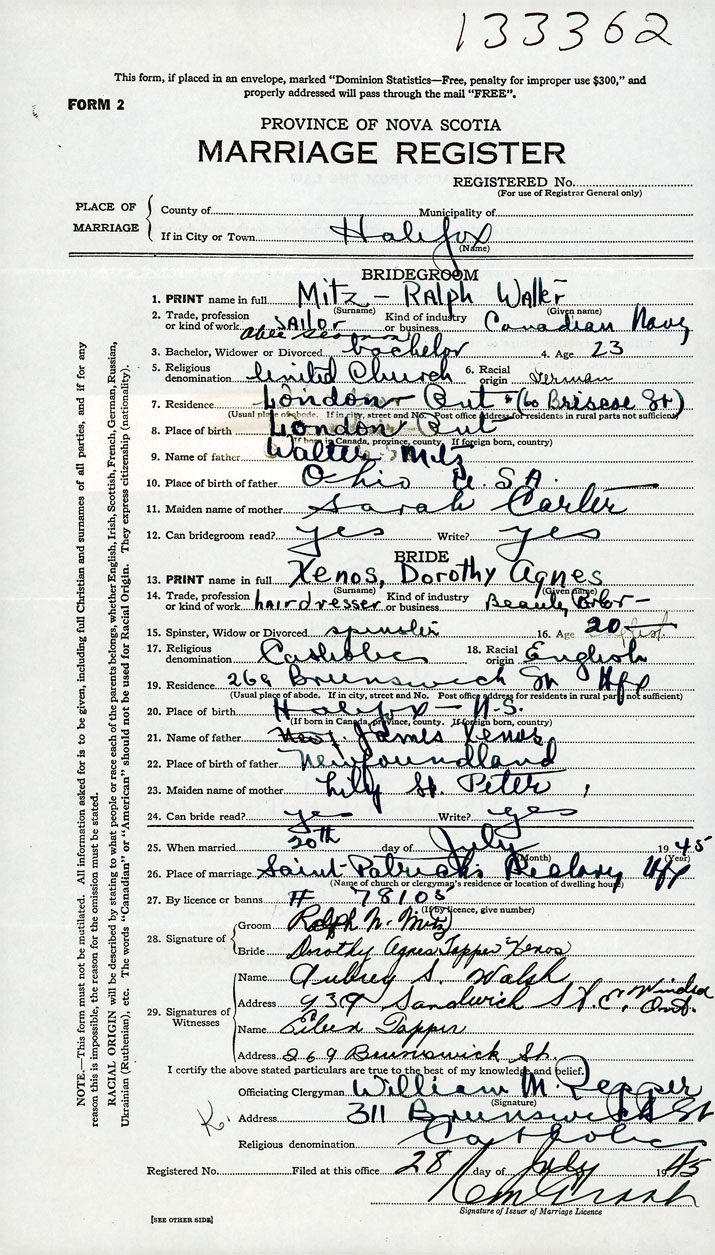 133362
This form, if placed in an envelope, marked "Dominion Statistics—Free, penalty for improper use $300," and
properly addressed will pass through the mail "FREE".
FORM 2
PROVINCE OF NOVA SCOTIA
MARRIAGE REGISTER
REGISTERED No.
(For use of Registrar General only)
PLACE OF MARRIAGE
County of Municipality of
If in City or Town Halifax
(Name)
BRIDEGROOM
1. PRINT name in full Mitz - Ralph Walter
(Surname) (Given name)
2. Trade, profession or kind of work Sailor able seaman Kind of industry or business Canadian Navy
3. Bachelor, Widower or Divorced bachelor 4. Age 23
5. Religious denomination United Church 6. Racial origin German
7. Residence London Ont (60 Briscoe St)
(Usual place of abode. If in city, street and No. Post office address for residents in rural parts not sufficient)
8. Place of birth London Ont
(If born in Canada, province, county. If foreign born, country)
9. Name of father Walter Mitz
10. Place of birth of father Ohio U.S.A.
11. Maiden name of mother Sarah Carter
12. Can bridegroom read? yes Write? yes
BRIDE
13. PRINT name in full Xenos, Dorothy Agnes
(Surname) (Given name)
14. Trade, profession or kind of work hairdresser Kind of industry or business Beauty Parlor -
15. Spinster, Widow or Divorced spinster 16. Age 20
17. Religious denomination Catholic 18. Racial origin English
19. Residence 269 Brunswick St Hfx
(Usual place of abode. If in city, street and No. Post office address for residents in rural parts not sufficient)
20. Place of birth Halifax - N.S.
(If born in Canada, province, county. If foreign born, country)
21. Name of father James Xenos
22. Place of birth of father Newfoundland
23. Maiden name of mother Lily St. Peter
24. Can bride read? yes Write? yes
25. When married 20th day of July 1945
(Month) (Year)
26. Place of marriage Saint Patrick's Hfx
(Name of church or clergyman's residence or location of dwelling house)
27. By licence or banns # 78103
(If by licence, give number)
28. Signature of
Groom Ralph W. Mitz
Bride Dorothy Agnes Tapper Xenos
29. Signatures of Witnesses
Name Aubrey S. Walsh
Address 939 Sandwich St. E. Windsor Ont.
Name Eileen Tapper
Address 269 Brunswick St.
I certify the above stated particulars are true to the best of my knowledge and belief.
Officiating Clergyman William M. Pepper
(Signature)
Address 311 Brunswick St
Religious denomination Catholic
Registered No. Filed at this office 28 day of July 1945
Signature of Issuer of Marriage Licence
[SEE OTHER SIDE]
NOTE.—This form must not be mutilated. All information asked for is to be given, including full Christian and surnames of all parties, and if for any
reason this is impossible, the reason for the omission must be stated.
RACIAL ORIGIN will be described by stating to what people or race each of the parents belongs, whether English, Irish, Scottish, French, German, Russian,
Ukrainian (Ruthenian), etc. The words "Canadian" or "American" should not be used for Racial Origin. They express citizenship (nationality).